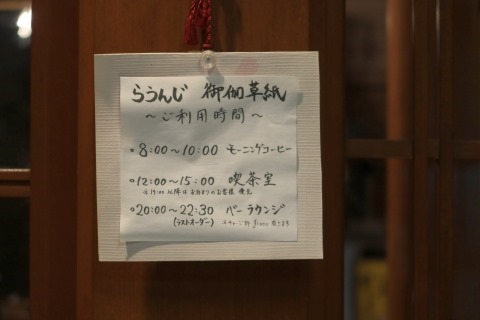 らうんじ 御伽草紙
〜ご利用時間〜
・8:00〜10:00 モーニングコーヒー
・12:00〜15:00 喫茶室
・20:00〜22:30 バーラウンジ
(ラストオーダー)